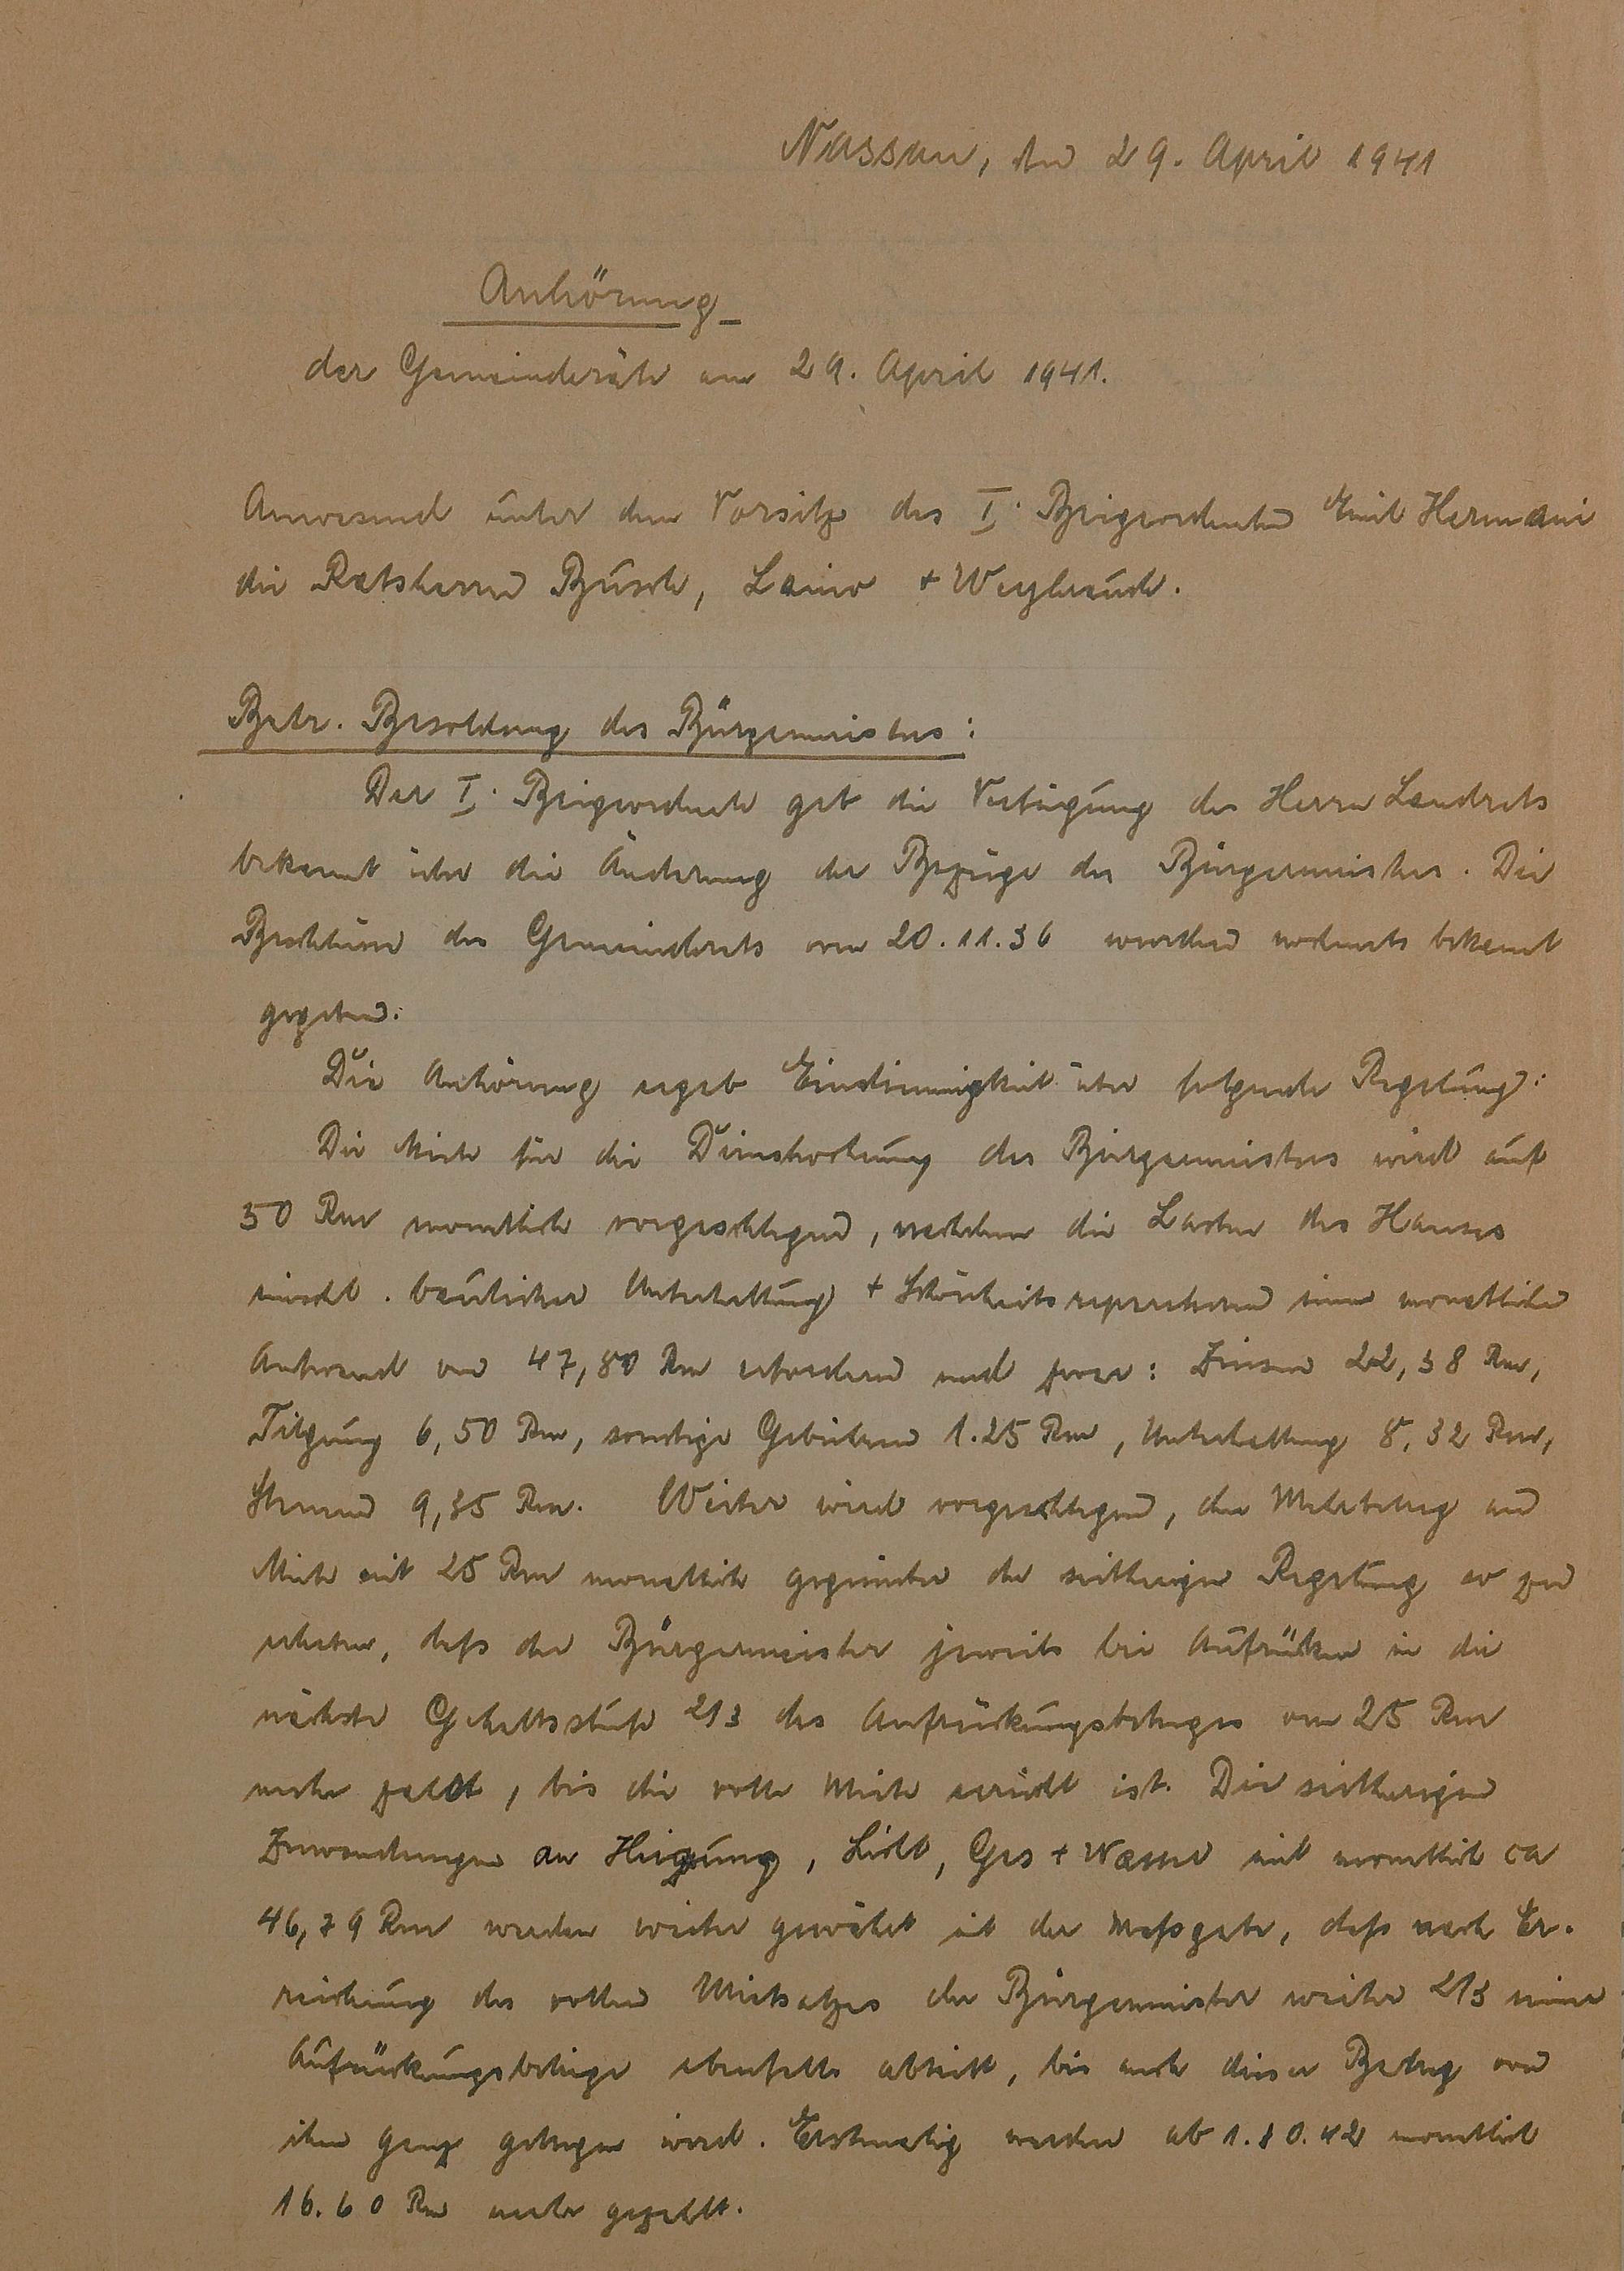 Nassau, den 29. April 1941
Anhörung
der Gemeinderäte am 29. April 1941.
Anwesend unter dem Vorsitz des I. Beigeordneten Emil Hermani
die Ratsherren Busch, + Weyhrauch.
Betr. Besoldung des Bürgermeisters:
Der I. Beigeordnete gab die Verfügung des Herrn Landrats
bekannt über die Änderung der Bezüge des Bürgermeisters. Die
Beschlüsse des Gemeinderats vom 20.11.36 wurden nochmals bekannt
gegeben.
Die Anhörung ergab Einstimmigkeit über folgende Regelung:
Die Miete für die Dienstwohnung des Bürgermeisters wird auf
50 Rm monatlich vorgeschlagen, nachdem die Lasten des Hauses
einschl. baulicher Unterhaltung + Schönheitsreparaturen einen monatlichen
Aufwand von 47,80 Rm erfordern und zwar: Zinsen 22,38 Rm,
Tilgung 6,50 Rm, sonstige Gebühren 1.25 Rm, Unterhaltung 8,32 Rm,
Steuern 9,35 Rm. Weiter wird vorgeschlagen, den Mehrbetrag an
Miete mit 25 Rm monatlich gegenüber der seitherigen Regelung so zu
erheben, daß der Bürgermeister jeweils bei Aufrücken in die
nächste Gehaltsstufe 2/3 des Aufrückungsbetrages von 25 Rm
mehr zahlt, bis die volle Miete erreicht ist. Die seitherigen
Zuwendungen an Heizung, Licht, Gas + Wasser mit monatlich ca
46,79 Rm werden weiter gewährt mit der Maßgabe, daß nach Er-
reichung des vollen Mietsatzes der Bürgermeister weiter 2/3 seiner
Aufrückungsbeträge ebenfalls abtritt, bis auch dieser Betrag von
ihm ganz getragen wird. Erstmalig werden ab 1.10.42 monatlich
16.60 Rm mehr gezahlt.